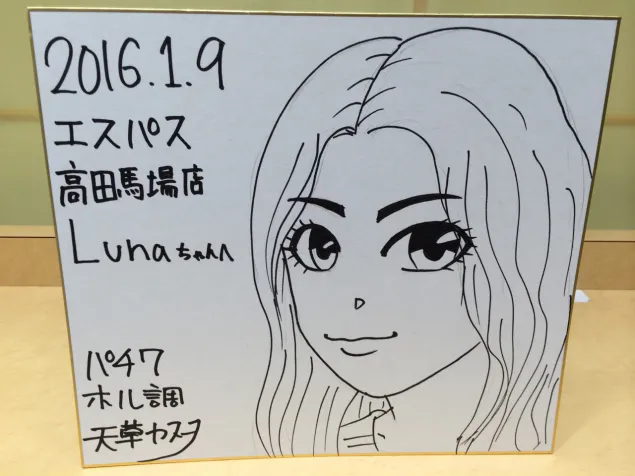 2016.1.9
エスパス
高田馬場店
Lunaちゃんへ
パチ7
ホル調
天草ヤスヲ